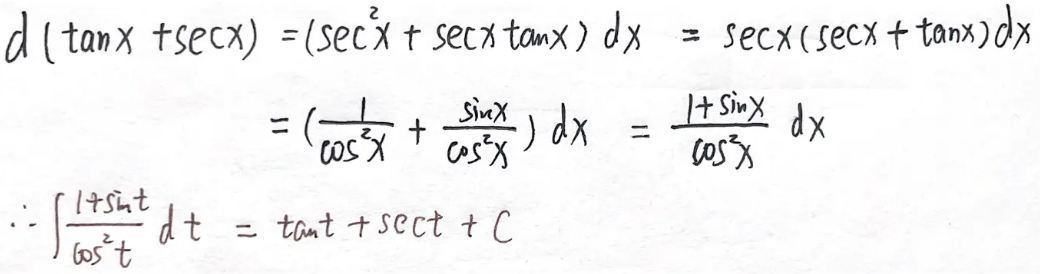 d(tanx + secx) = (sec²x + secx tanx) dx = secx(secx + tanx)dx
= (1/cos²x + sinx/cos²x) dx = (1+sinx)/cos²x dx
∴ ∫ (1+sint)/cos²t dt = tant + sect + C